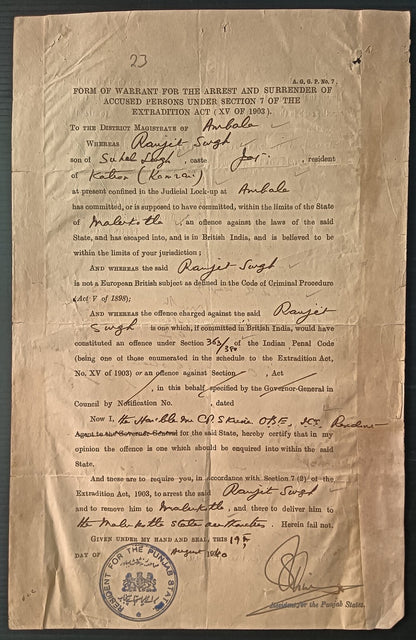 23
A. G. G. P. No. 7.
FORM OF WARRANT FOR THE ARREST AND SURRENDER OF
ACCUSED PERSONS UNDER SECTION 7 OF THE
EXTRADITION ACT (XV OF 1903).
TO THE DISTRICT MAGISTRATE OF Ambala
WHEREAS Ranjit Singh
son of Singh, caste resident
of
at present confined in the Judicial Lock-up at Ambala
has committed, or is supposed to have committed, within the limits of the State
of Malerkotla an offence against the laws of the said
State, and has escaped into, and is in British India, and is believed to be
within the limits of your jurisdiction;
AND WHEREAS the said Ranjit Singh
is not a European British subject as defined in the Code of Criminal Procedure
(Act V of 1898);
AND WHEREAS the offence charged against the said Ranjit
Singh is one which, if committed in British India, would have
constituted an offence under Section 363/380 of the Indian Penal Code
(being one of those enumerated in the schedule to the Extradition Act,
No. XV of 1903) or an offence against Section , Act
, in this behalf specified by the Governor-General in
Council by Notification No. , dated
Now I, the Hon'ble Mr C.P. Skrine OBE, ICS, Resident
Agent to the Governor General for the said State, hereby certify that in my
opinion the offence is one which should be enquired into within the said
State.
And these are to require you, in accordance with Section 7 (2) of the
Extradition Act, 1903, to arrest the said Ranjit Singh
and to remove him to Malerkotla, and there to deliver him to
the Maler Kotla State authorities. Herein fail not.
GIVEN UNDER MY HAND AND SEAL, THIS 19th
DAY OF August 1940
RESIDENT FOR THE PUNJAB STATES
Resident for the Punjab States.